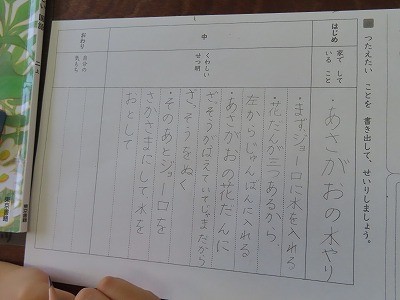 つたえたい ことを 書き出して、せいりしましょう。
はじめ
家で して
いる こと
・あさがおの水やり
中
くわしい
せつ明
・まずジョーロに水を入れる
・花だんが三つあるから、
左からじゅんばんに入れる
・あさがおの花だんに
ざそうがはえていてじゃまだから
ざっそうをぬく
・そのあとジョーロを
さかさまにして水を
おとして
おわり
自分の
気もち
東京書籍